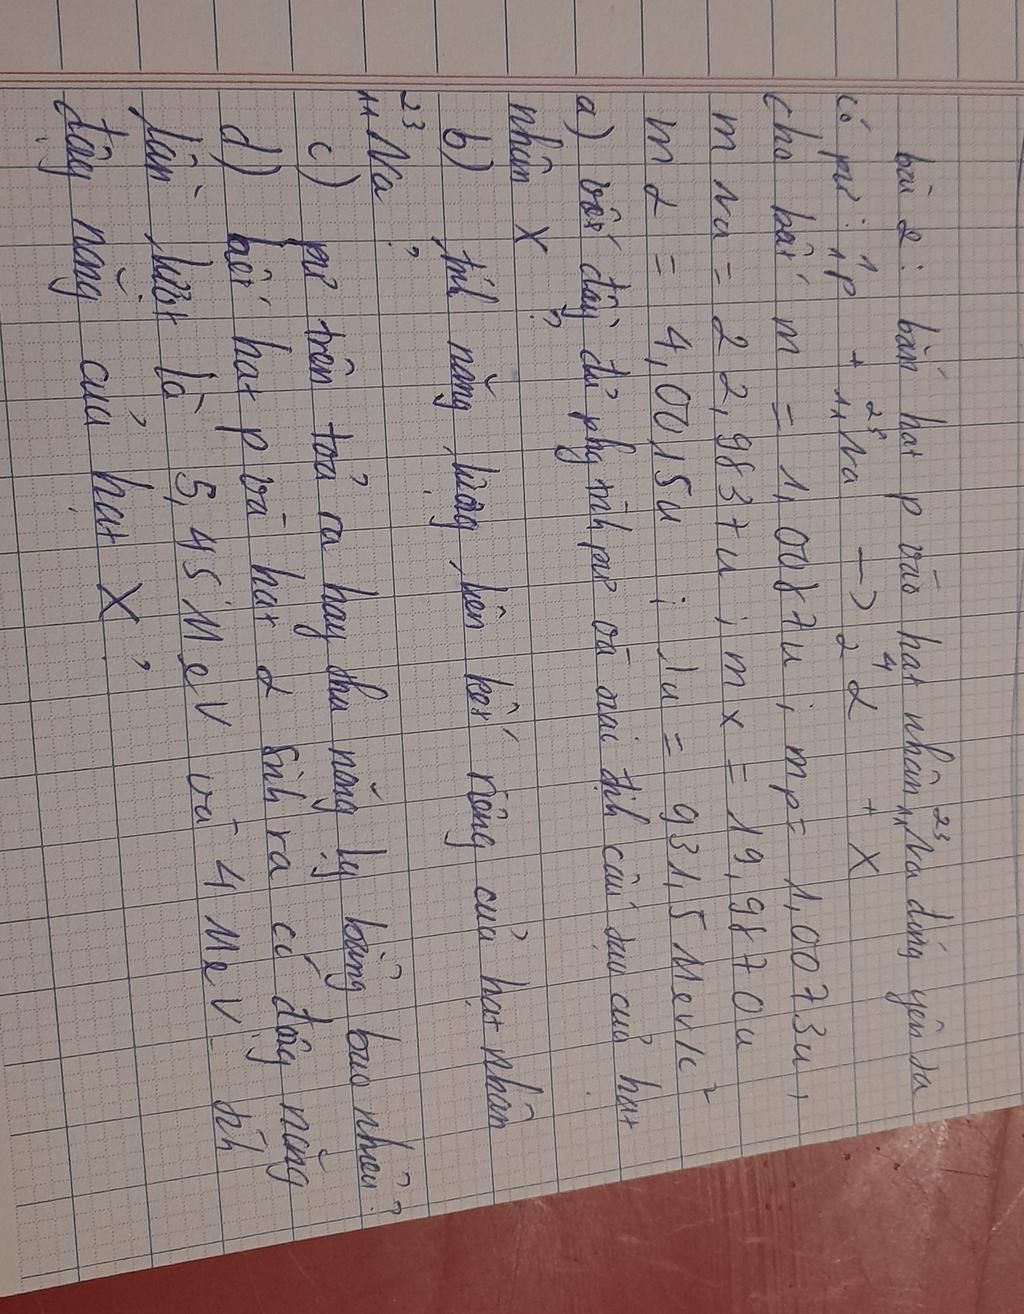 bài 2: bắn hạt p vào hạt nhân ²³₁₁Na đứng yên ta
có pư: ¹₁p + ²³₁₁Na → ⁴₂α + X
cho biết m = 1,0087u; mp = 1,0073u,
m Na = 22,9837u; mx = 19,9870u
mα = 4,0015u; 1u = 931,5 MeV/c²
a) viết đầy đủ phg trình pư và xác định cấu tạo của hạt
nhân X?
b) tính năng lượng liên kết riêng của hạt nhân
²³₁₁Na?
c) pư trên toả ra hay thu năng lg bằng bao nhiêu?
d) biết hạt p và hạt α sinh ra có động năng
lần lượt là 5,45 MeV và 4 MeV. tính
động năng của hạt X?